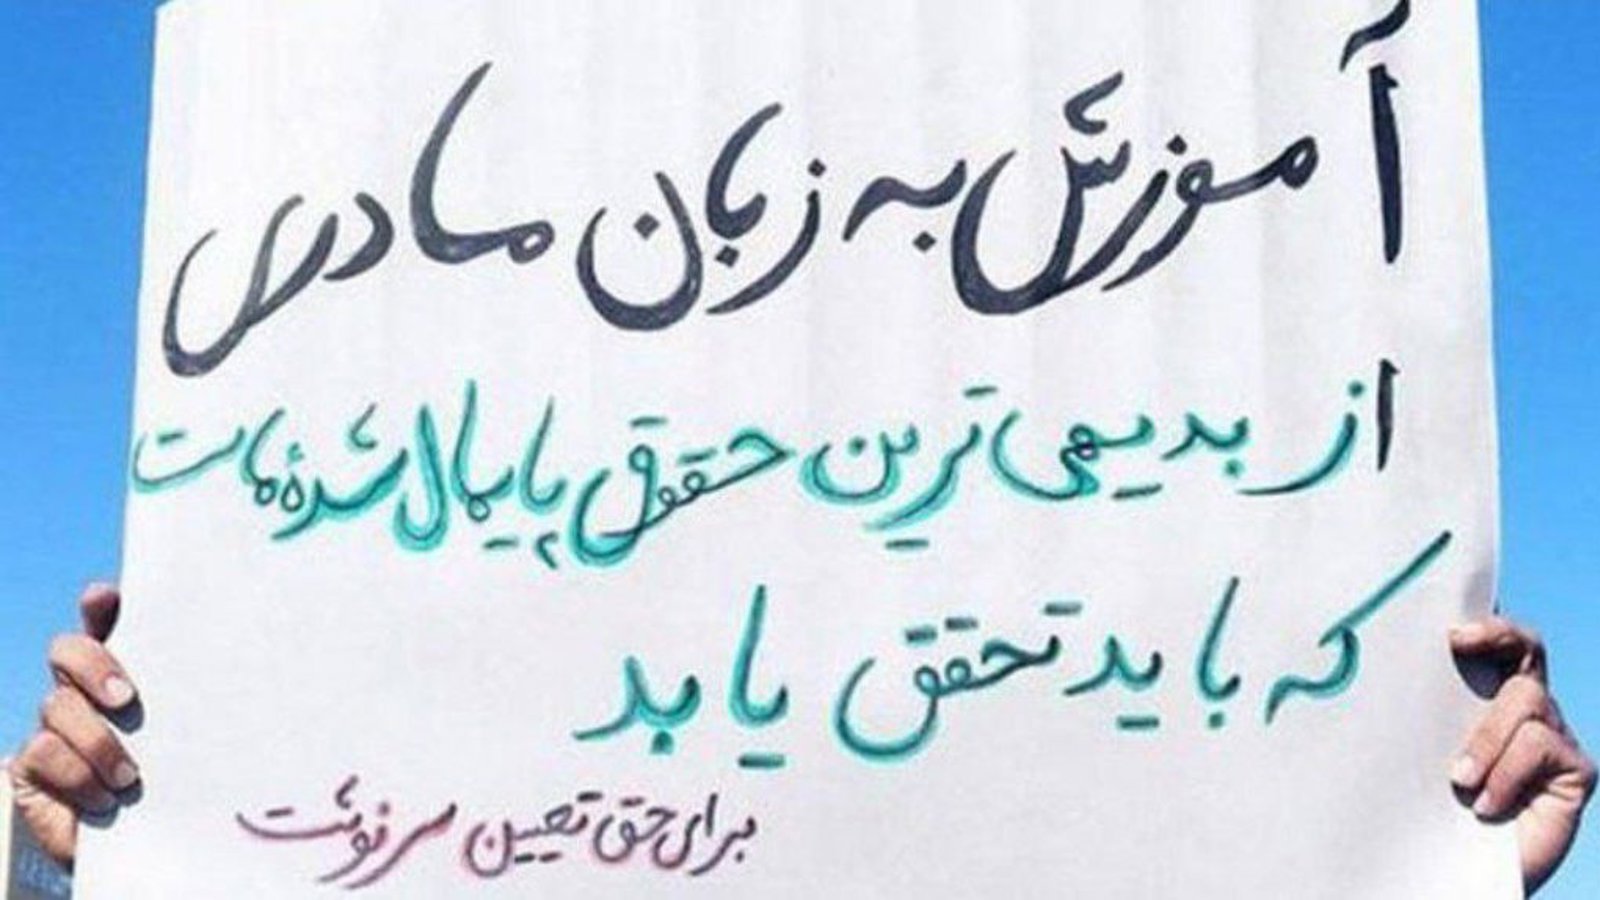 آموزش به زبان مادری
از بدیهی ترین حقوق پایمال شدهٔ ماست
که باید تحقق یابد
برای حق تعیین سرنوشت